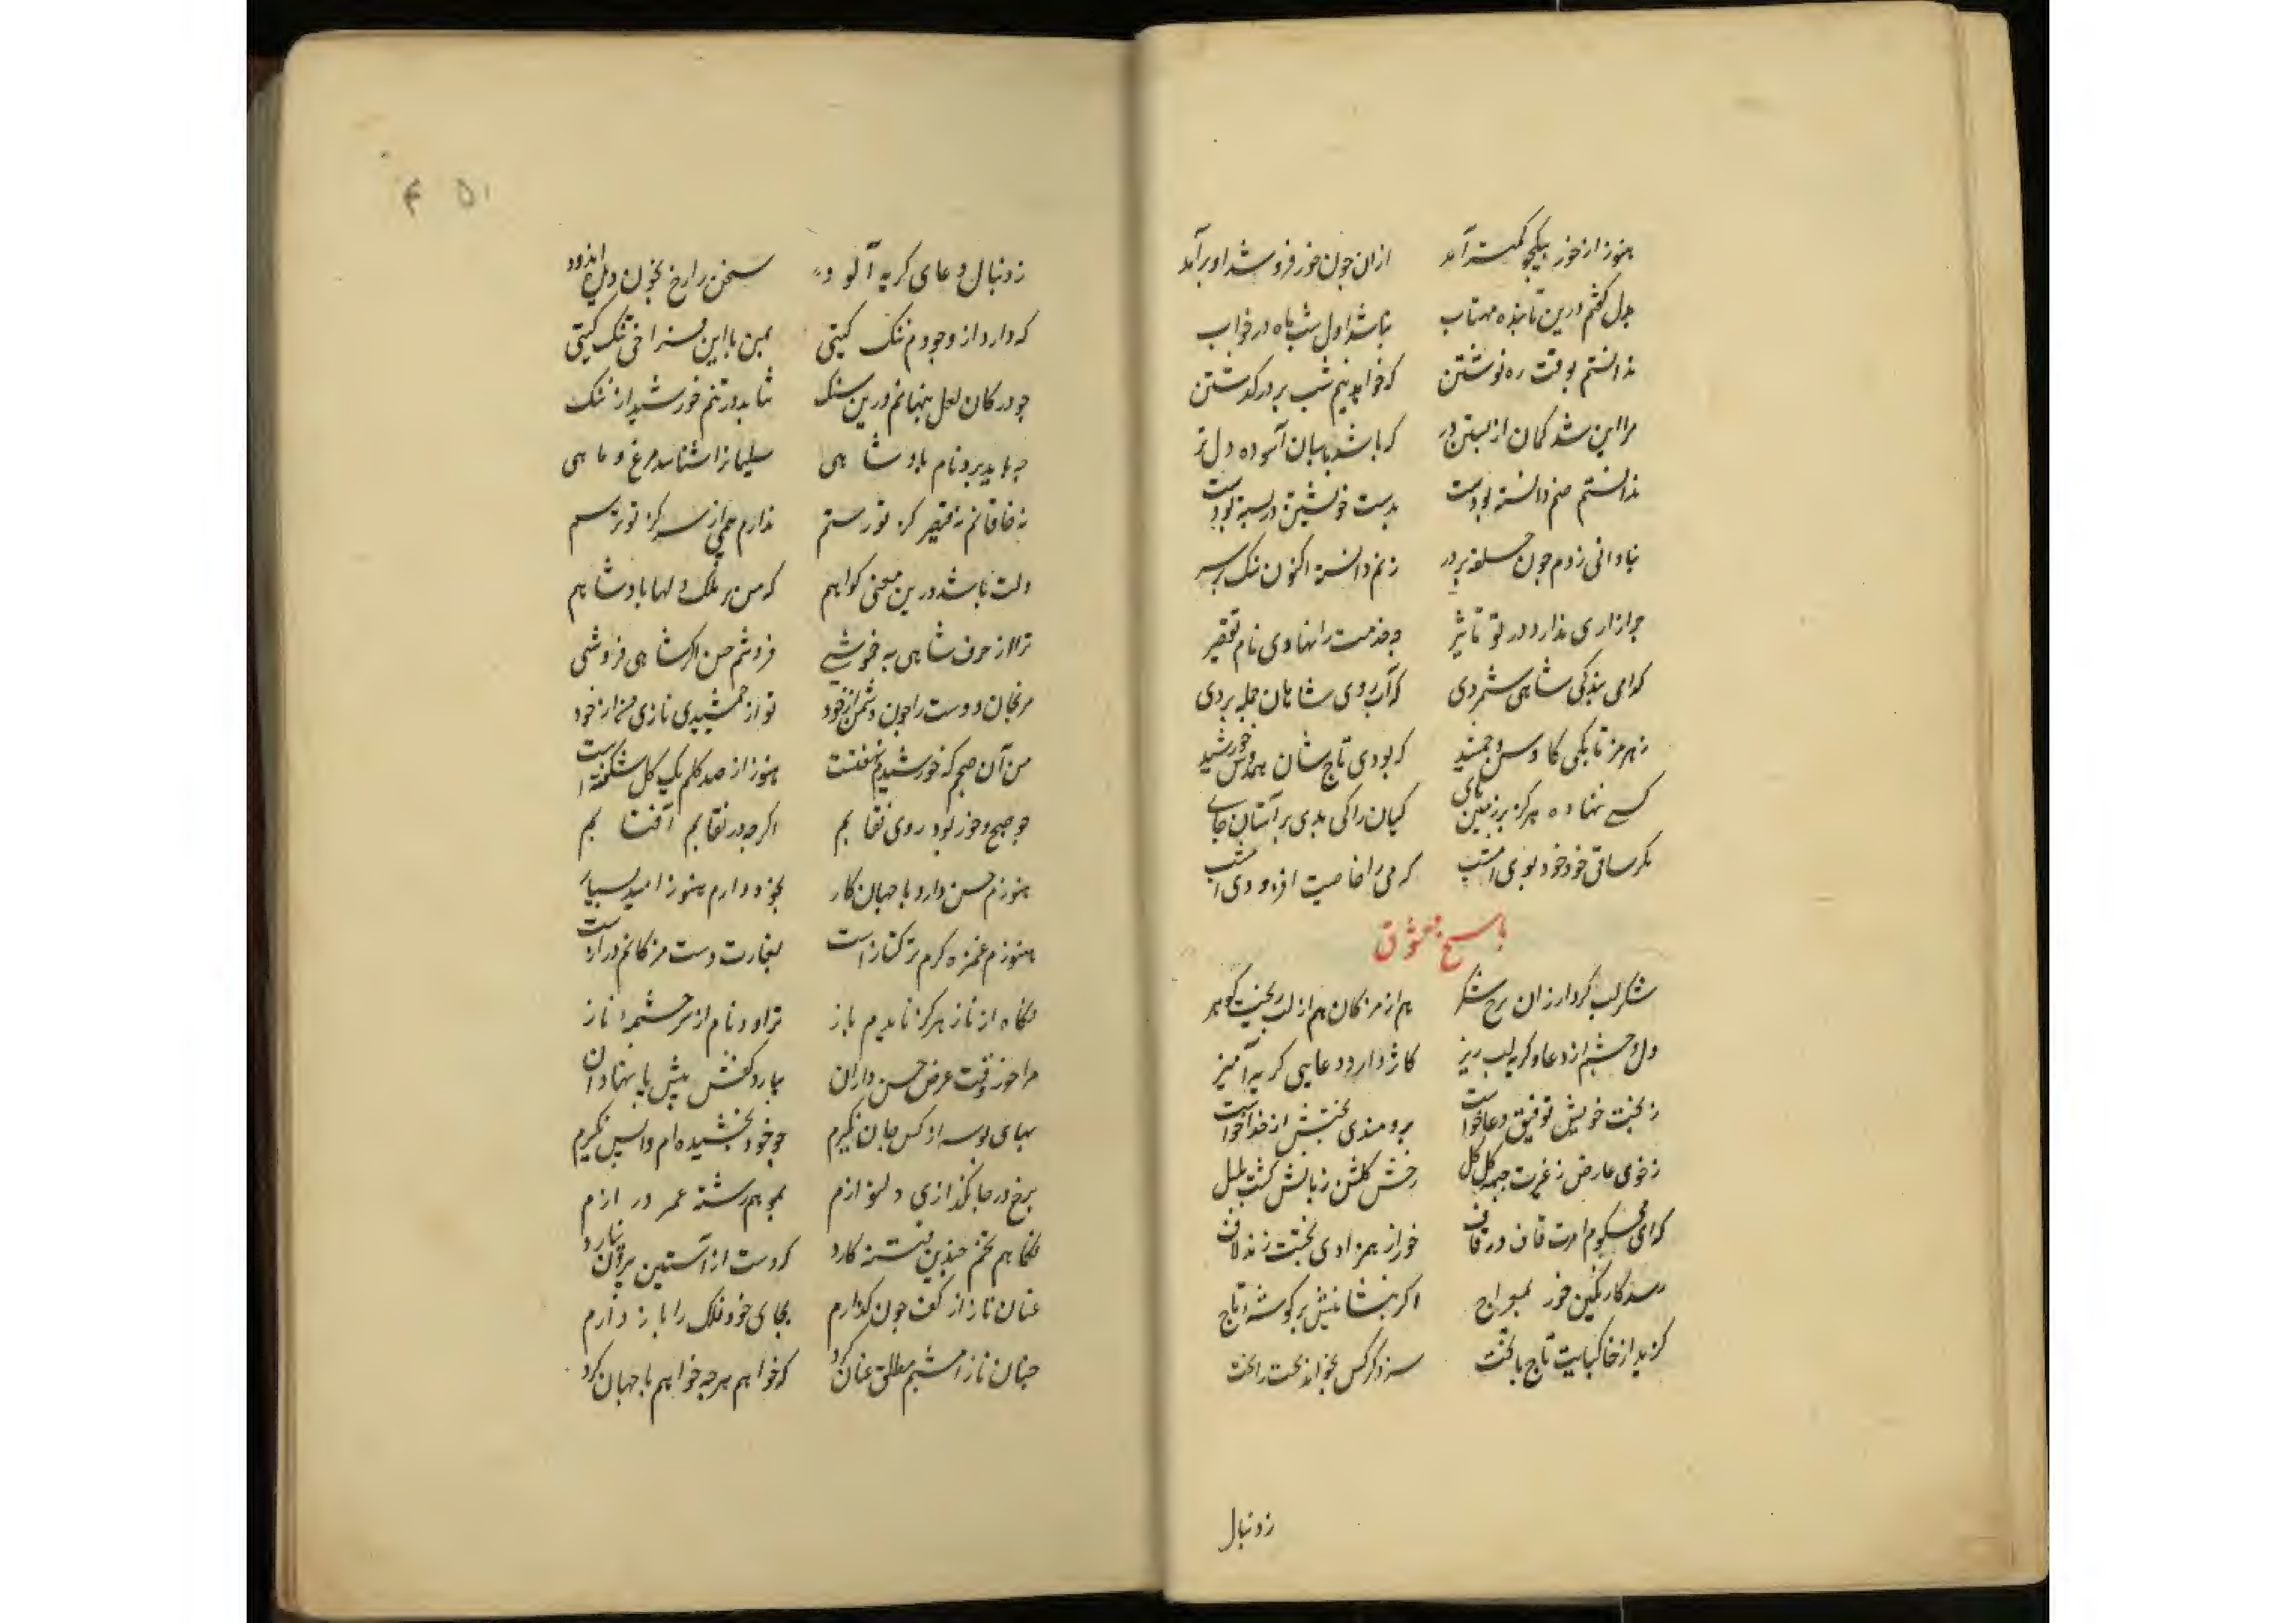 هنوز از خور بیکجو کمتر آمد ازان جون خور فرو شد او برآمد
بدل گفتم درین تابنده مهتاب نباشد اول شب ماه در خواب
ندانستم بوقت ره نوشتن که خواهد نیم شب بر در گذشتن
مرا این شد کمان از بستن در که باشد پاسبان آسوده دل تر
ندانستم صنم دانسته بودست بدست خویشتن در بسته بودست
بنادانی زدم جون حلقه بر در زنم دانسته اکنون سنک بر سر
جو زاری ندارد در تو تاثیر جه خدمت را نهادی نام تقصیر
کدامی بندکی شاهی شمردی که آب روی شاهان جمله بردی
ز هرمز تا بکی کاوس و جمشید که بودی تاج شان همدوش خورشید
کسی ننهاده هرکز بر زمین پای کیان را کی بدی بر آستان جای
مکر ساقی خود خود بودی امشب که می را خاصیت افزودی امشب
پاسخ معشوق
شکر لب کرد ازان شکر هم از مژکان هم از لب ریخت کوهر
دل و چشم از دعا و کریه لب ریز کاثر دارد دعایی کریه آمیز
ز بخت خویش توفیق دعا خواست برومندی بختش از خدا خواست
ز خوی عارض ز غیرت جبهه کل کل رخش کلشن زبانش کشت بلبل
که ای محکوم امرت قاف در قاف خور از همزادی بختت زند لاف
رسد کار نکین خور بمعراج اکر بنشانیش بر کوشه تاج
کزید از خاکپایت تاج با تخت سزد کر کس بخواند تخت را بخت
ز دنبال
۴۵۱
ز دنبال دعای کریه آلود سخن را رخ بخون دل اندود
که دارد از وجودم ننک کیتی ببین با این فراخی تنک کیتی
جو در کان لعل پنهانم درین سنک نتابد در تنم خورشید از ننک
جه باید برد نام پادشاهی سلیمانرا شناسد مرغ و ماهی
نه خاقانم نه قیصر کز تو رستم ندارم همی از سر کز تو ترسم
دلت باشد درین معنی کواهم که من بر ملک دلها پادشاهم
ترا از حرف شاهی به خموشی فروشم حسن اکر شاهی فروشی
مرنجان دوست را جون دشمن از خود تو از جمشیدی نازی من از خود
من آن صبحم که خورشیدم نهفتست هنوز از صد کلم یک کل شکفته است
جو صبح و خور بود روی نقابم اکرجه در نقابم آفتابم
هنوزم حسن دارد با جهان کار بخود دارم هنوز امید بسیار
هنوزم غمزه کرم ترکتازست بغارت دست مژکانم درازست
نکاه از ناز هرکز نایدم باز تراود نام از سرچشمه ناز
مرا خور وقت عرض حسن داران بیارد کفش پیش پا نهادان
بهای بوسه از کس جان نکیرم جو خود بخشیده ام واپس نکیرم
برخ در جانکدازی دلنوازم بمو هم رشته عمر درازم
نکاهم تخم جندین فتنه کارد که دست از آستین بیرون نیارد
عنان ناز از کف جون کذارم بجای خود فلک را باز دارم
جنان ناز امشبم مطلق عنان کرد که خواهم هرجه خواهم با جهان کرد